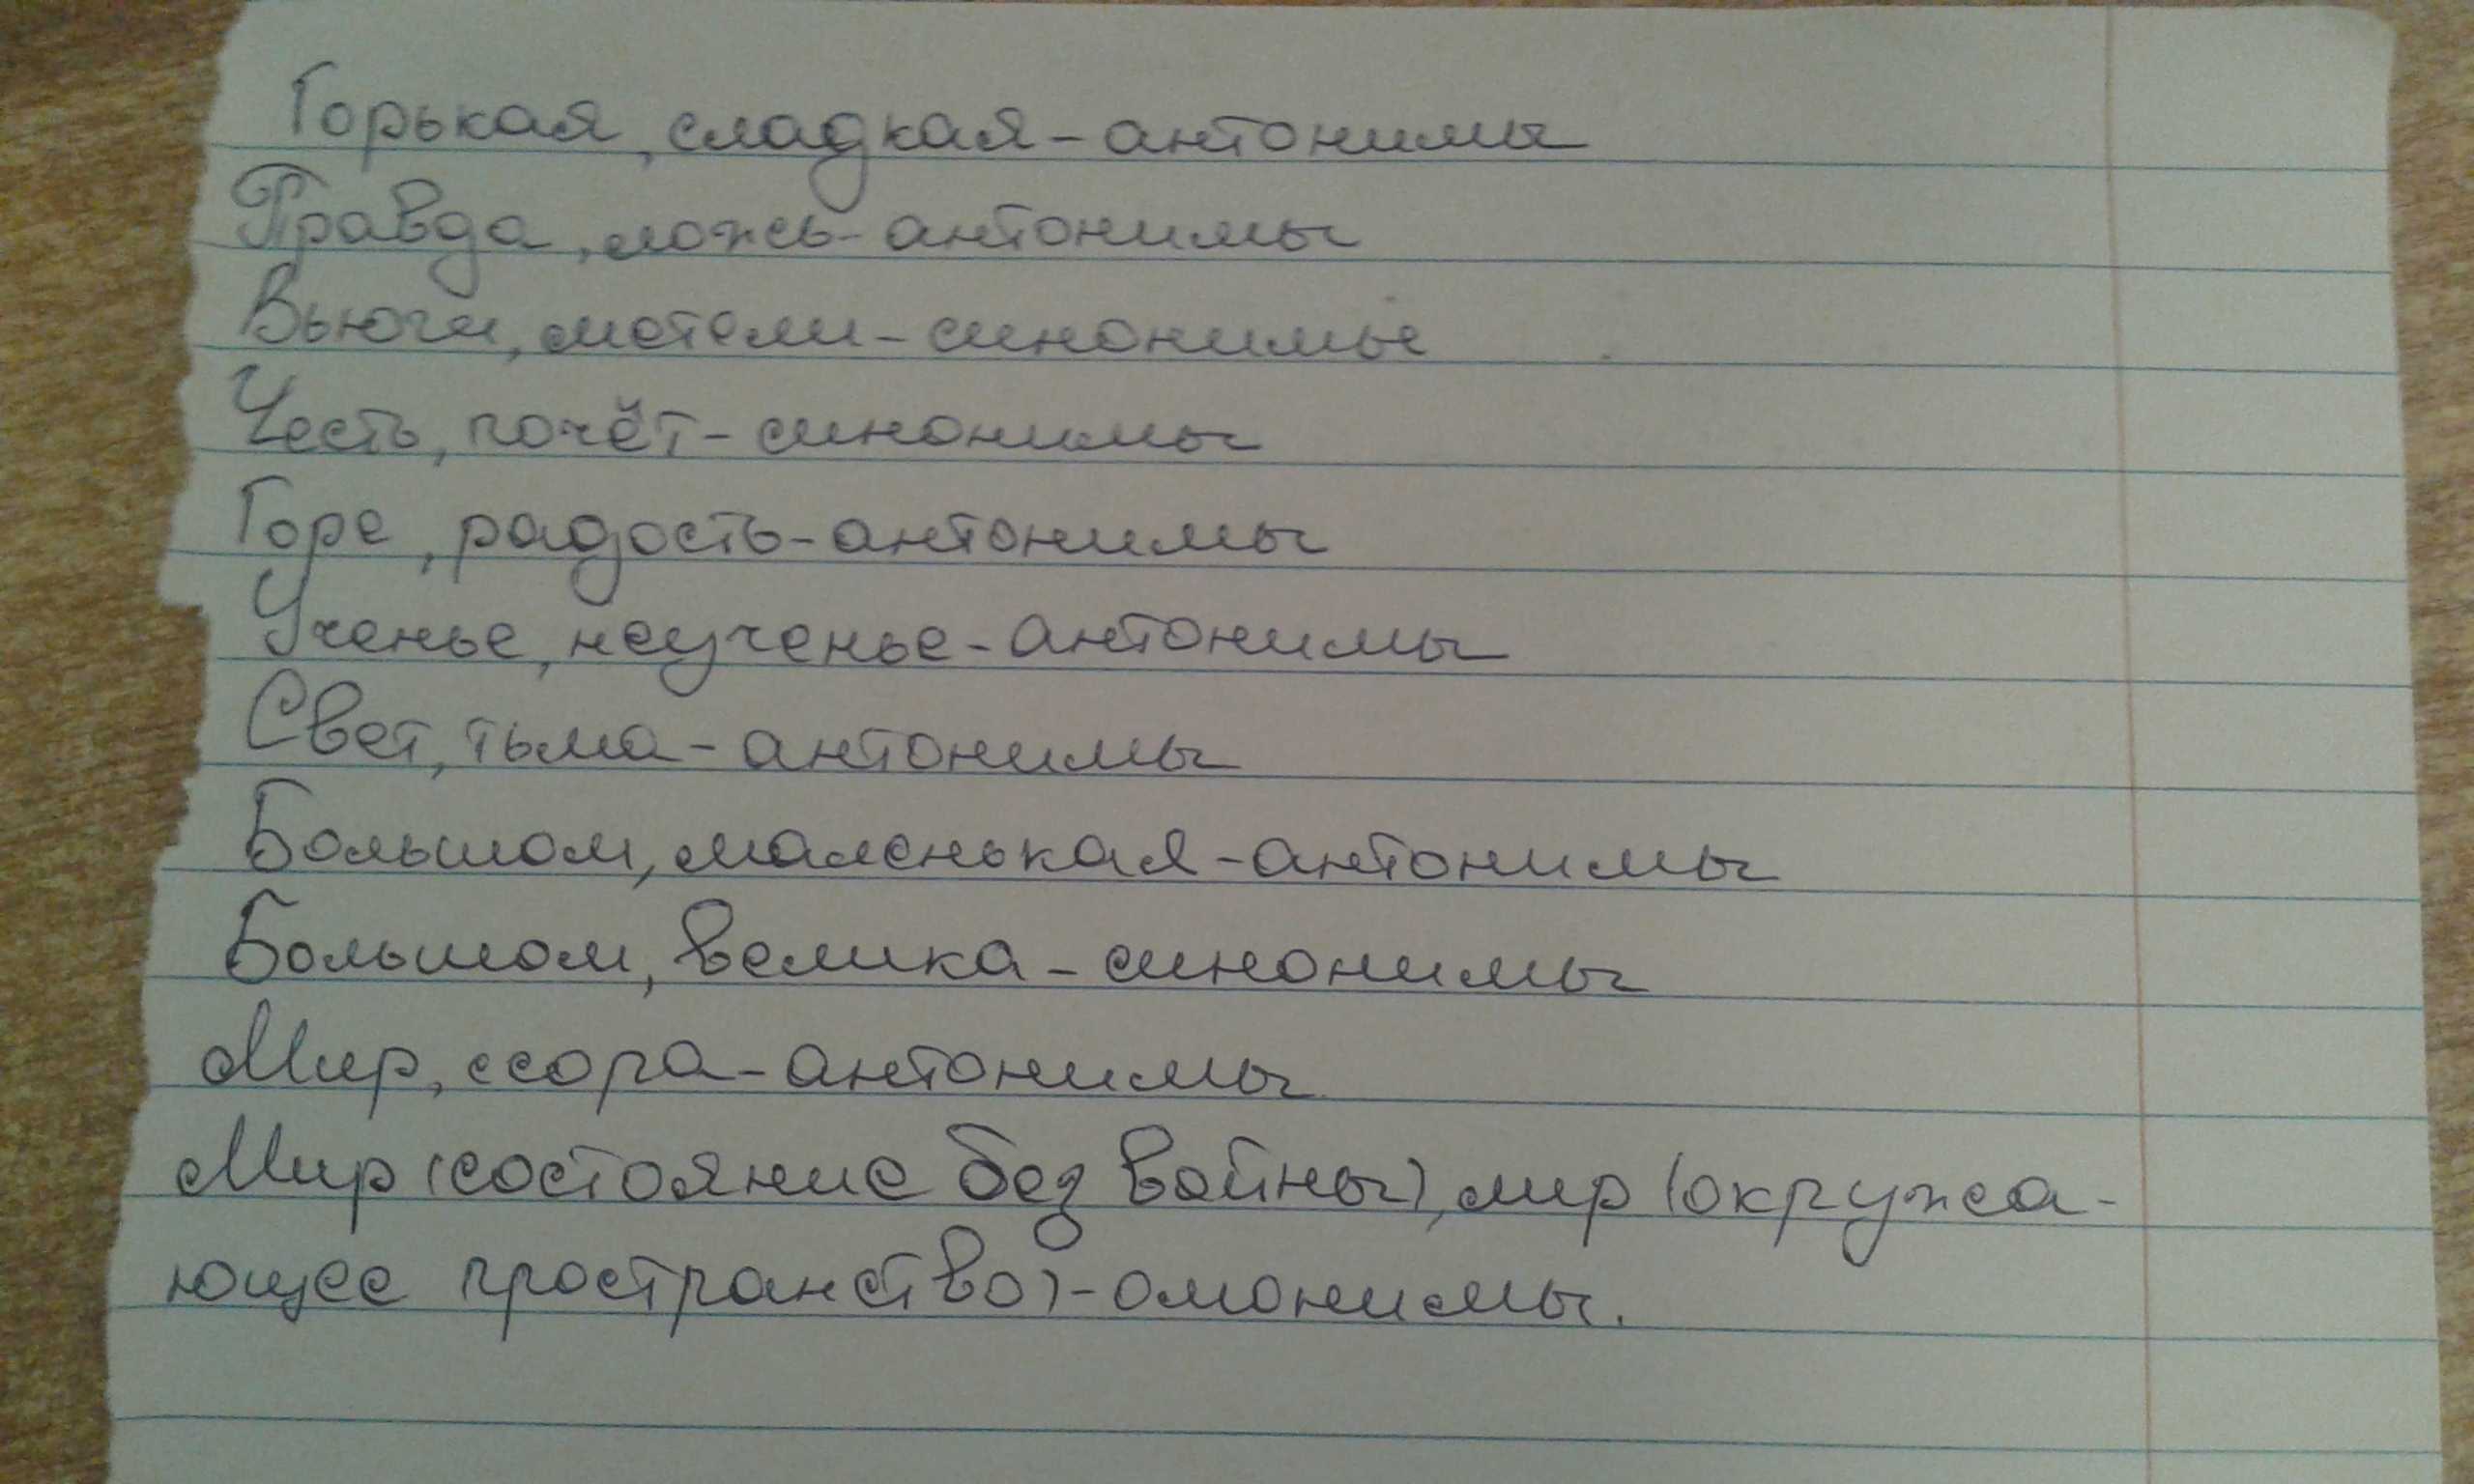 Горькая, сладкая - антонимы
Правда, ложь - антонимы
Вьюги, метели - синонимы
Честь, почёт - синонимы
Горе, радость - антонимы
Ученье, неученье - антонимы
Свет, тьма - антонимы
Большом, маленькая - антонимы
Большом, велика - синонимы
Мир, ссора - антонимы
Мир (состояние без войны), мир (окружа-
ющее пространство) - омонимы.